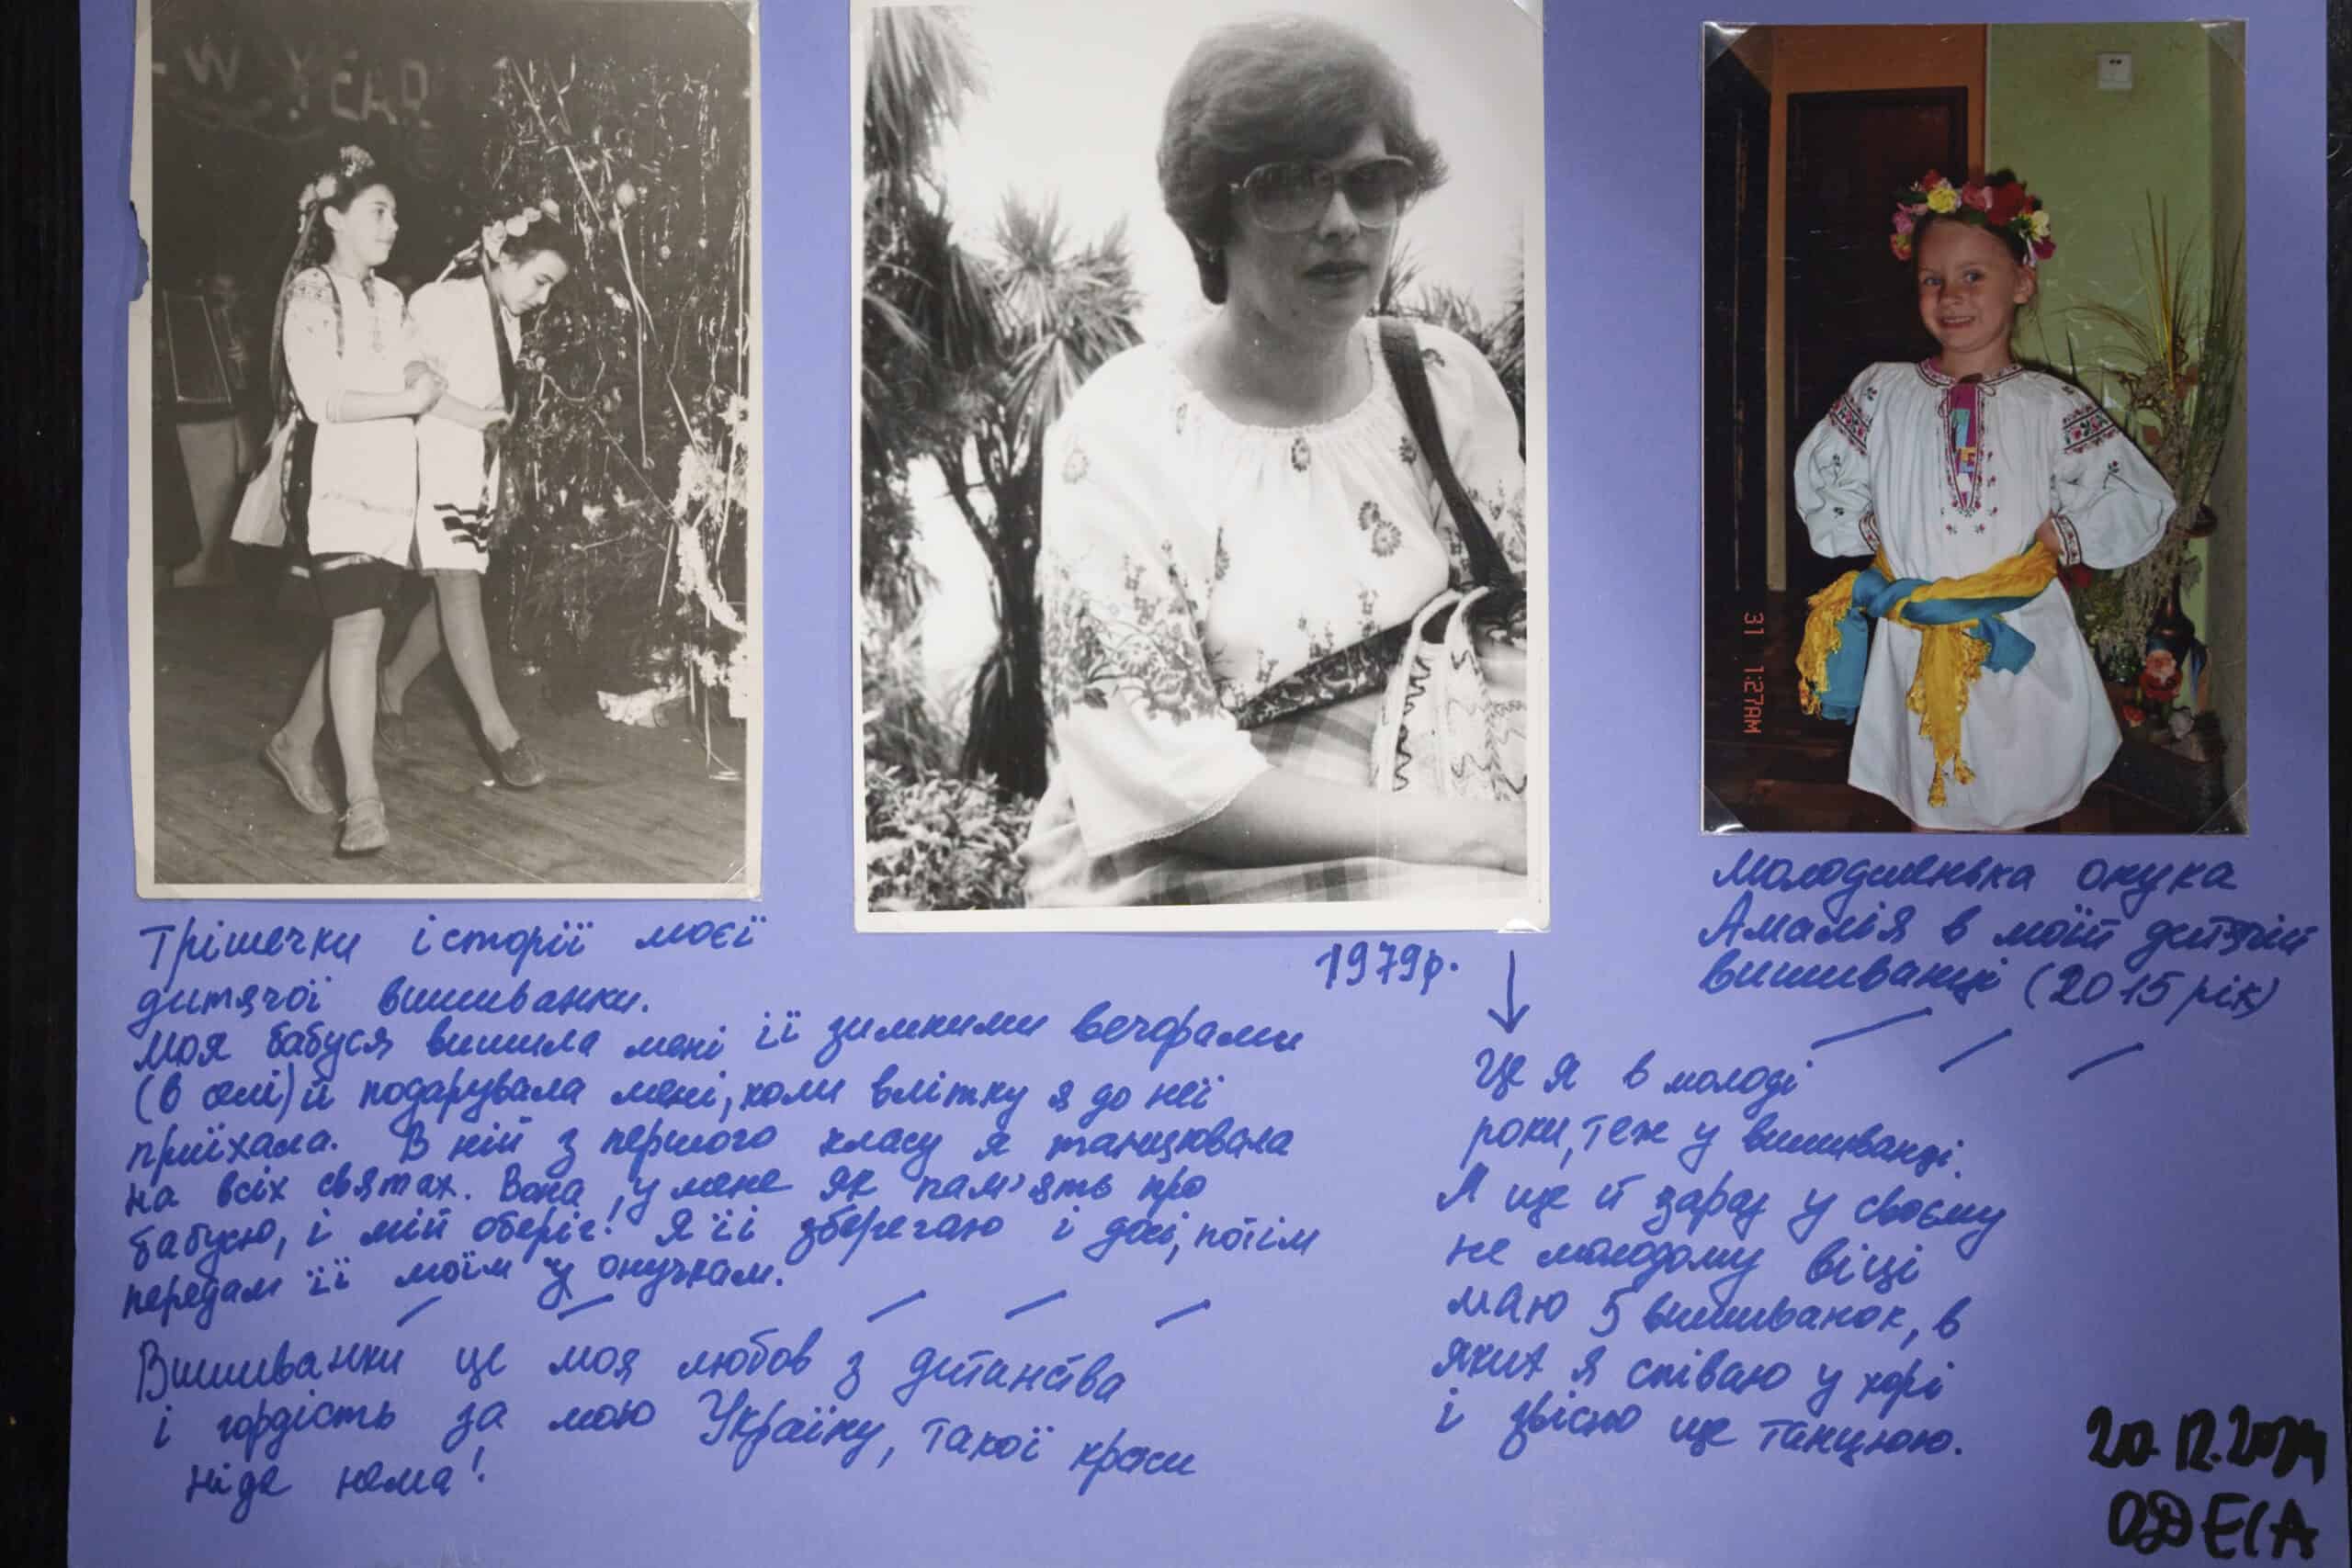 W YEAR
31 1:27AM
Трішечки історії моєї
дитячої вишиванки.
Моя бабуся вишила мені її зимними вечорами
(в селі) й подарувала мені, коли влітку я до неї
приїхала. В ній з першого класу я танцювала
на всіх святах. Вона, у мене як пам'ять про
бабусю, і мій оберіг! Я її зберегаю і досі, потім
передам її моїм у онучкам.
Вишиванки це моя любов з дитинства
і гордість за мою Україну, такої краси
ніде нема!
1979р.
Це я в молоді
роки, теж у вишиванці.
Я ще й зараз у своєму
не молодому віці
маю 5 вишиванок, в
яких я співаю у хорі
і звісно ще танцюю.
Молодшенька онука
Амалія в моїй дитячій
вишиванці (2015 рік)
20.12.2024
ОДЕСА